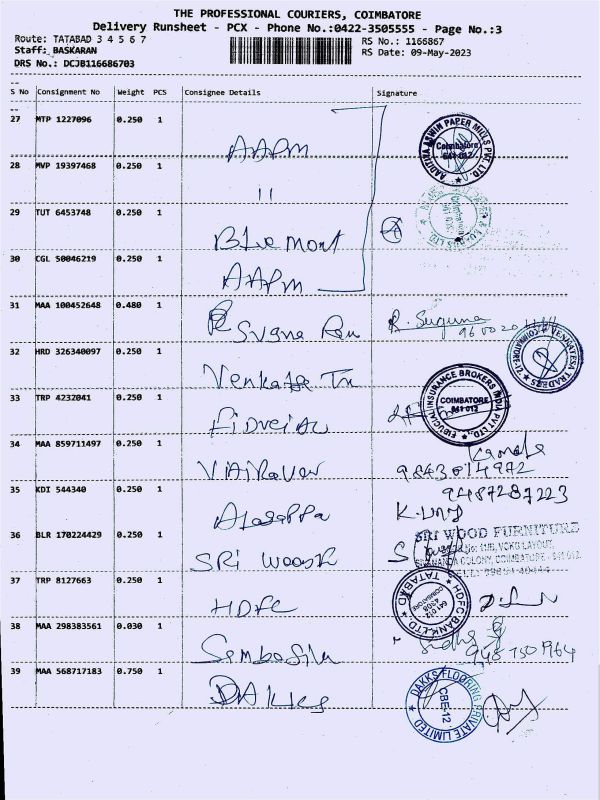 THE PROFESSIONAL COURIERS, COIMBATORE
Delivery Runsheet - PCX - Phone No.:0422-3505555 - Page No.:3
Route: TATABAD 3 4 5 6 7
Staff: BASKARAN
DRS No.: DCJB116686703
RS No.: 1166867
RS Date: 09-May-2023
S No Consignment No Weight PCS Consignee Details Signature
27 MTP 1227096 0.250 1
AAPM
AADITYA ASWIN PAPER MILLS PVT. LTD.
Coimbatore
641 012
28 MVP 19397468 0.250 1
11
29 TUT 6453748 0.250 1
Blue mont
30 CGL 50046219 0.250 1
AAPM
31 MAA 100452648 0.480 1
R. Suguna
32 HRD 326340097 0.250 1
VENKATESA TRADERS
COIMBATORE-12
33 TRP 4232041 0.250 1
FIDUCIAL INSURANCE BROKERS INDIA PVT LTD.
COIMBATORE
641 012
34 MAA 859711497 0.250 1
Kamala
9843814972
35 KDI 544340 0.250 1
9487287223
Alagappa
36 BLR 170224429 0.250 1
SRi
SRI WOOD FURNITURE
COLONY, COIMBATORE - 641 012.
37 TRP 8127663 0.250 1
HDFC
HDFC BANK LTD.
TATABAD
COIMBATORE
641 012
38 MAA 298383561 0.030 1
39 MAA 568717183 0.750 1
DAKKS
DAKKS FLOORING PRIVATE LIMITED
CBE-12